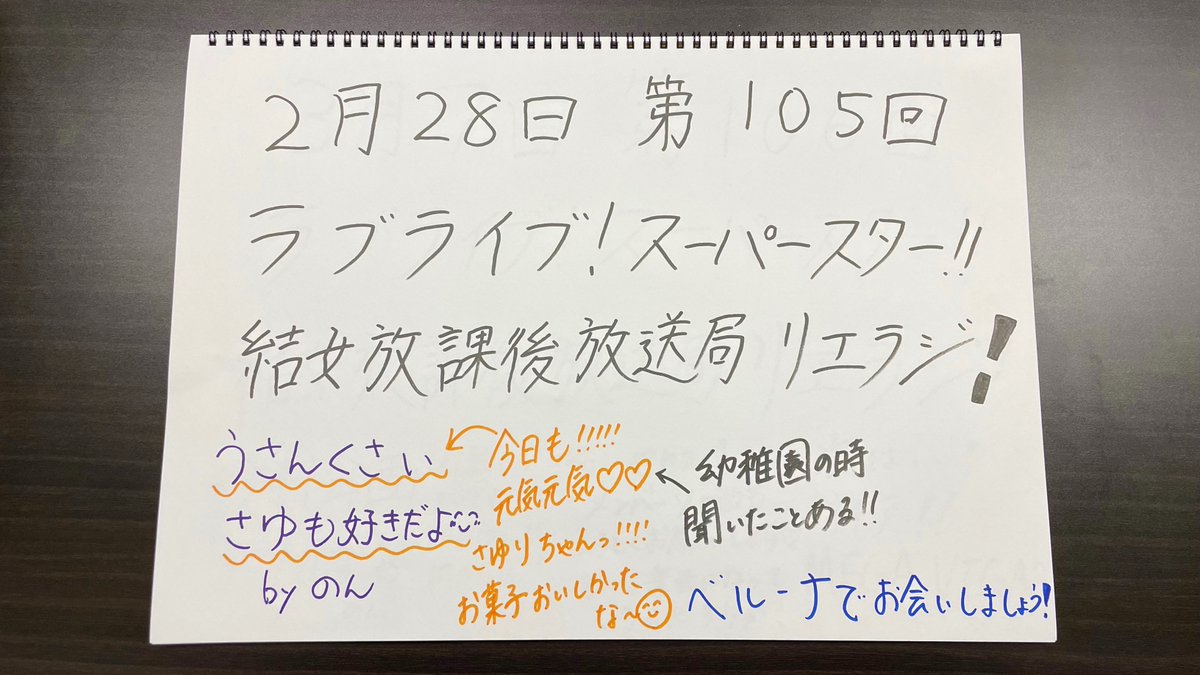 2月28日 第105回
ラブライブ!スーパースター!!
結女放課後放送局 リエラジ!
うさんくさい
さゆも好きだよ
by のん
今日も!!!!!
元気元気♡♡
さゆりちゃんっ!!!!
お菓子おいしかった
な〜
幼稚園の時
聞いたことある!!
ベルーナでお会いしましょう!